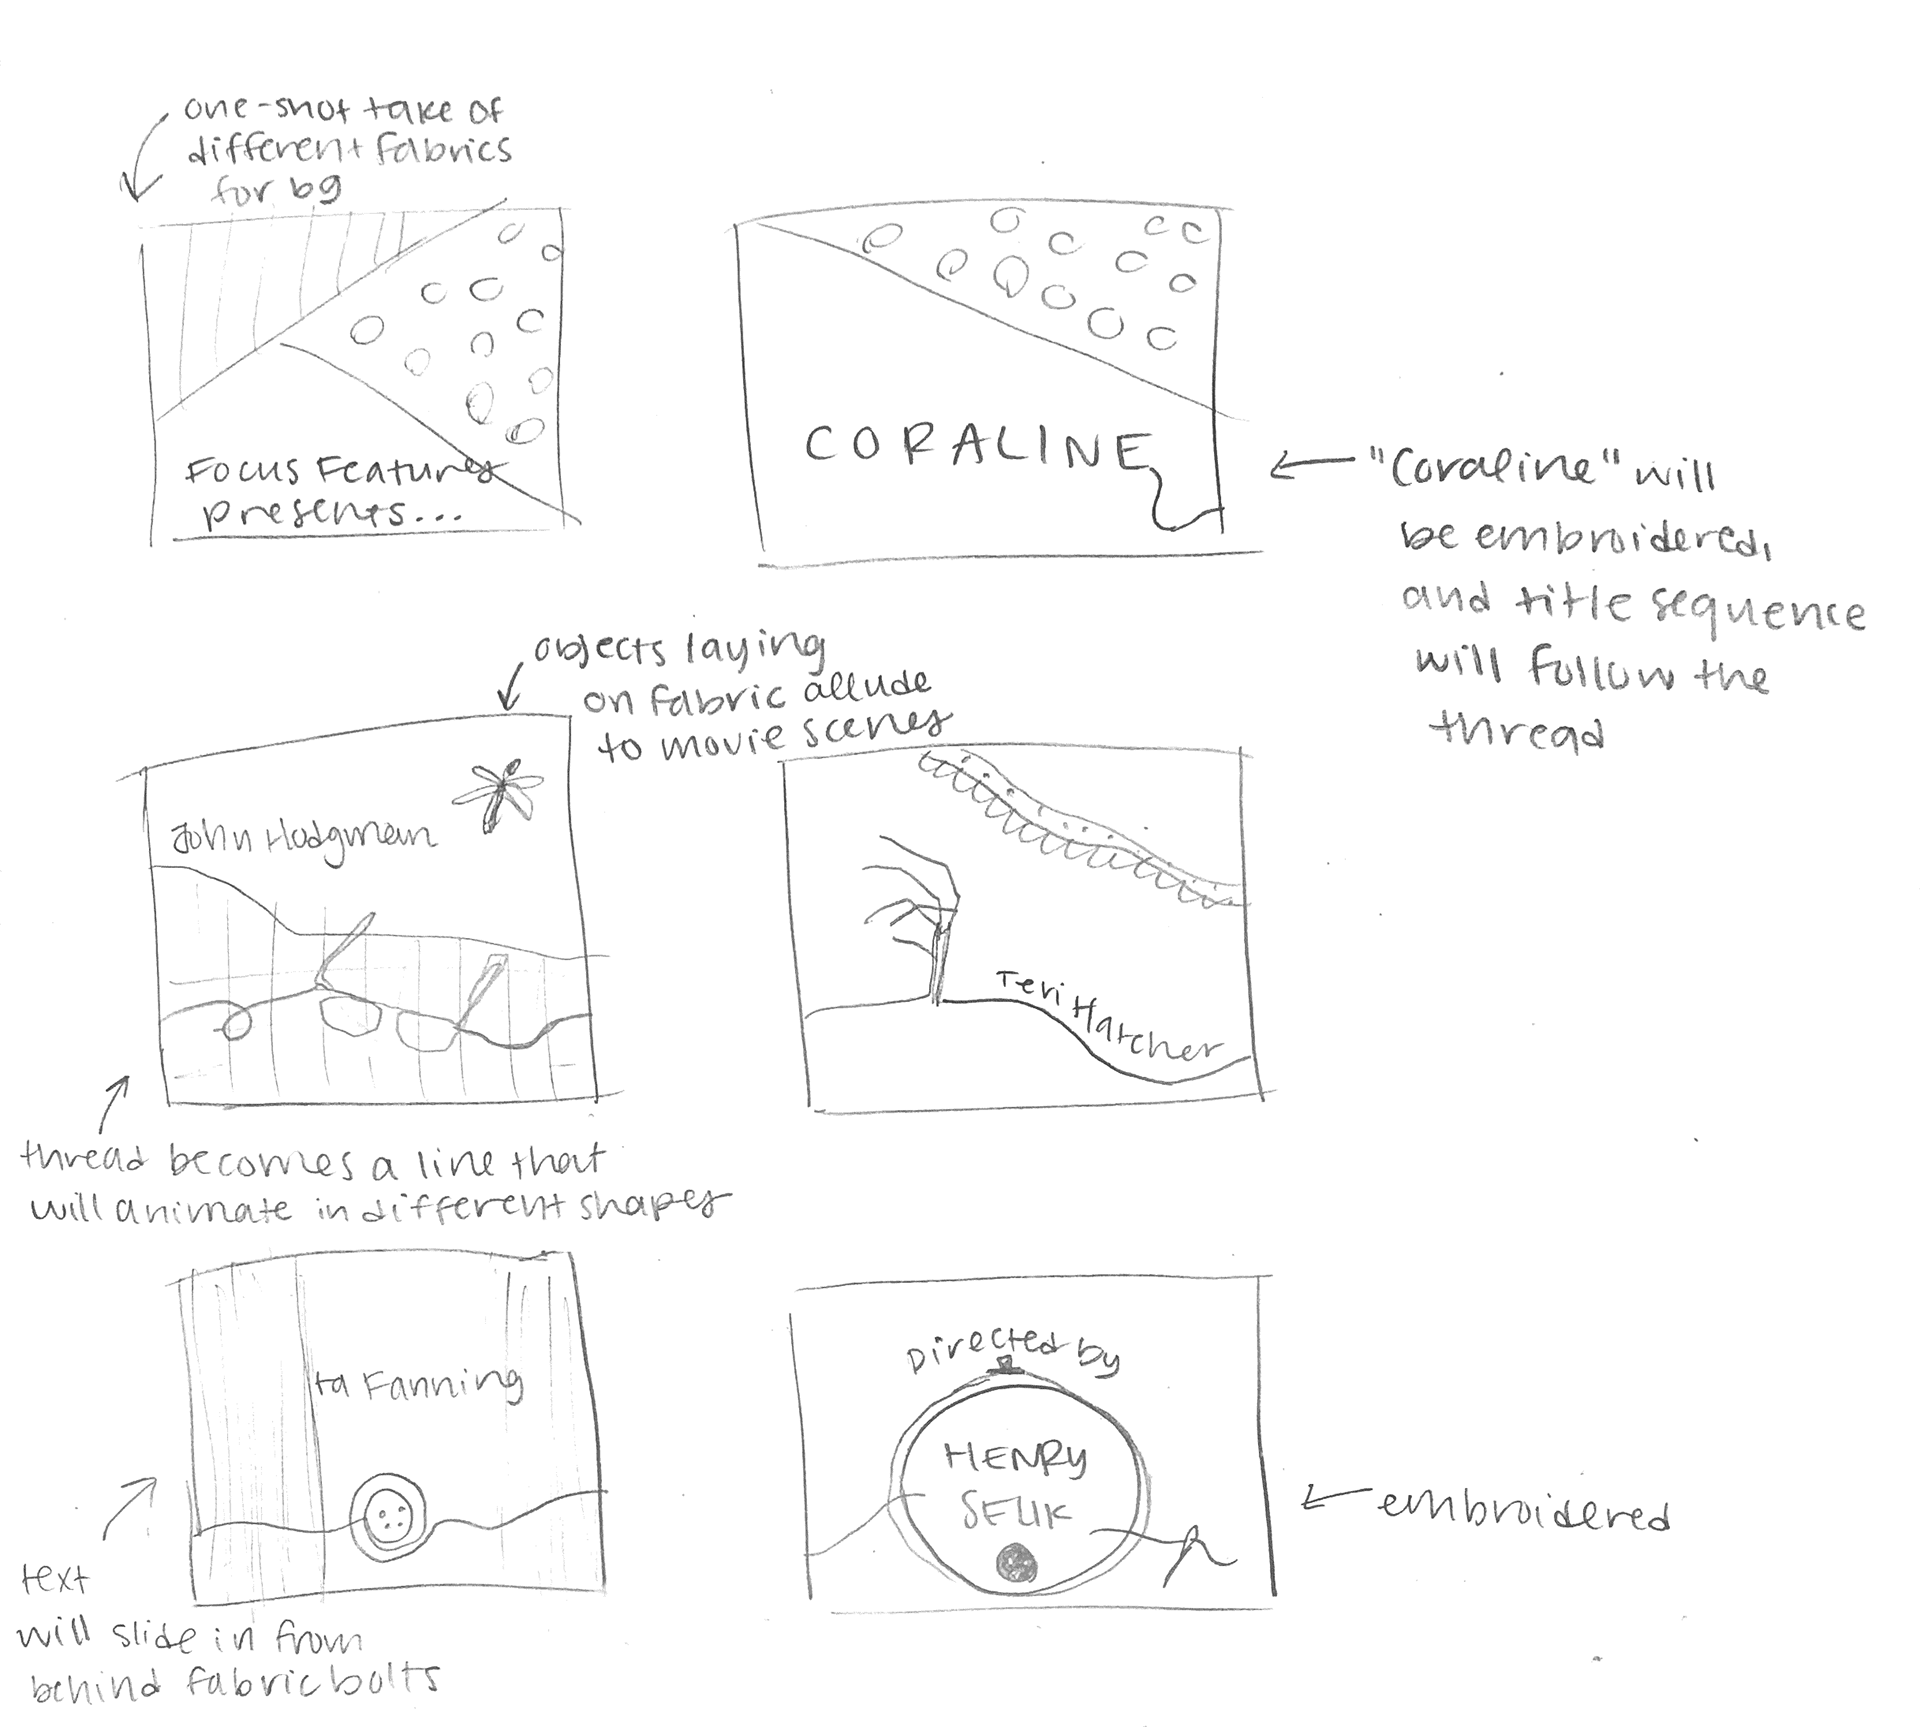 one-shot take of
different fabrics
for bg
Focus Features
presents...
CORALINE
"Coraline" will
be embroidered,
and title sequence
will follow the
thread
objects laying
on fabric allude
to movie scenes
John Hodgman
Teri Hatcher
thread becomes a line that
will animate in different shapes
ta Fanning
text
will slide in from
behind fabric bolts
Directed by
HENRY
SELIK
embroidered